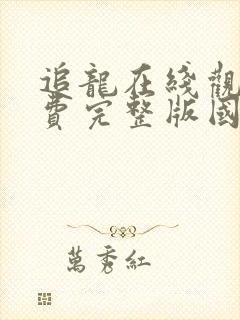 追龍在綫觀
費完整版國
萬秀紅